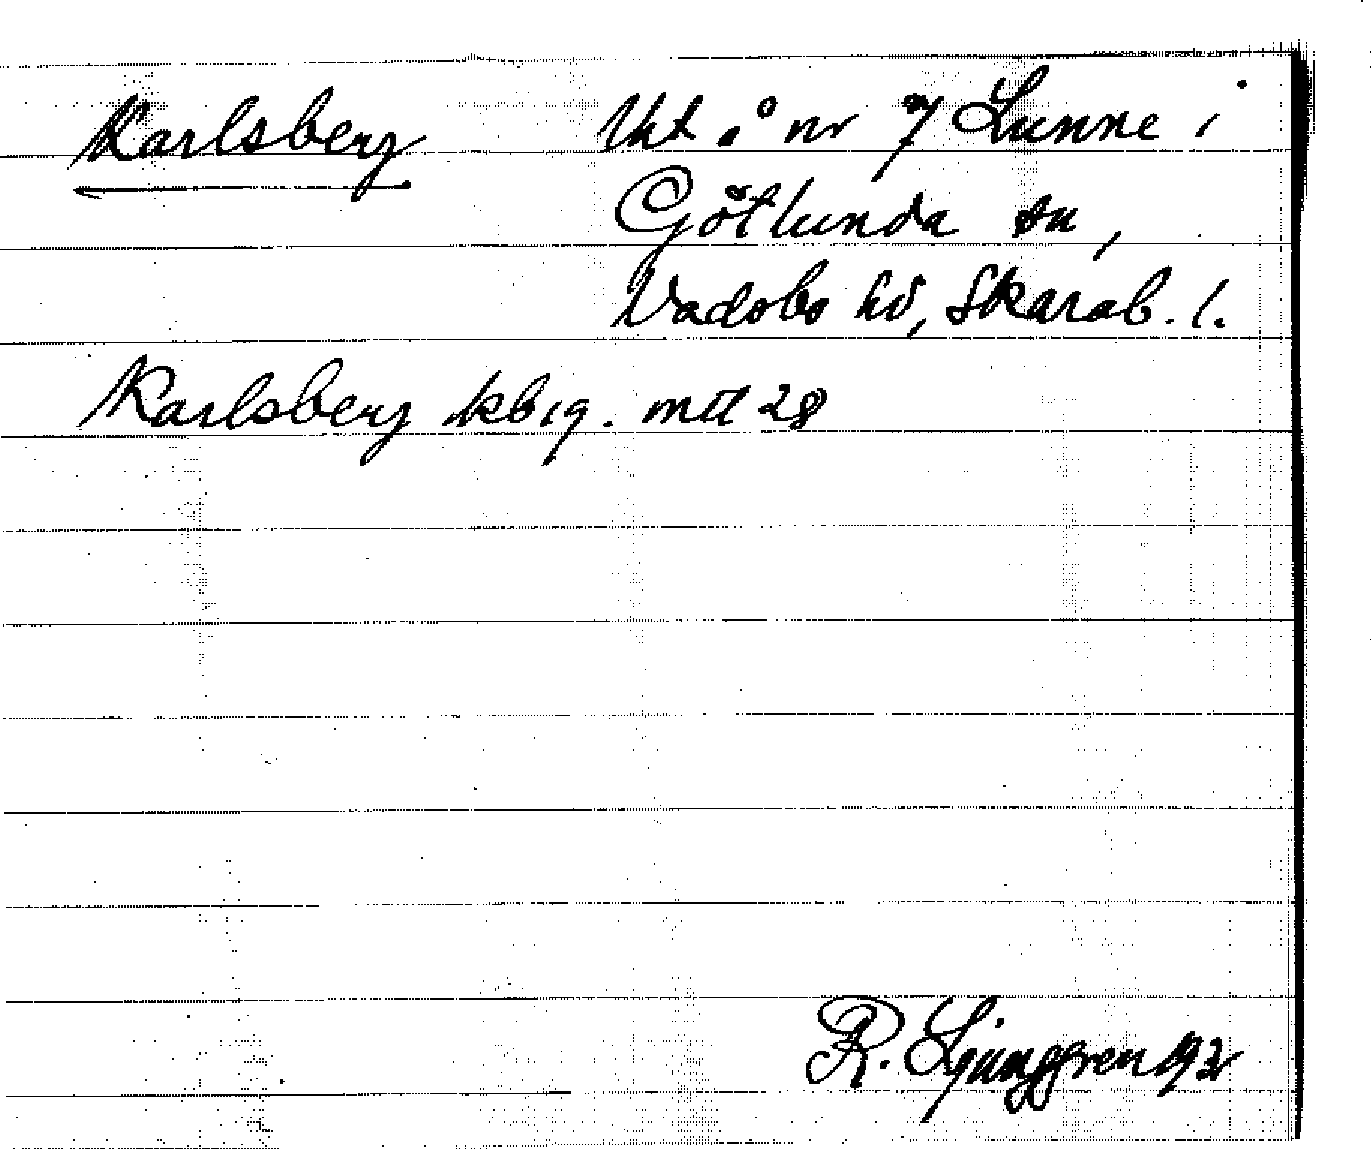 Karlsberg Utt å nr 7 Lunne i
Götlunda sn,
Vadsbo hd, Skarab. l.
Karlsberg kbig. mtl 28
R. Ljunggren 192